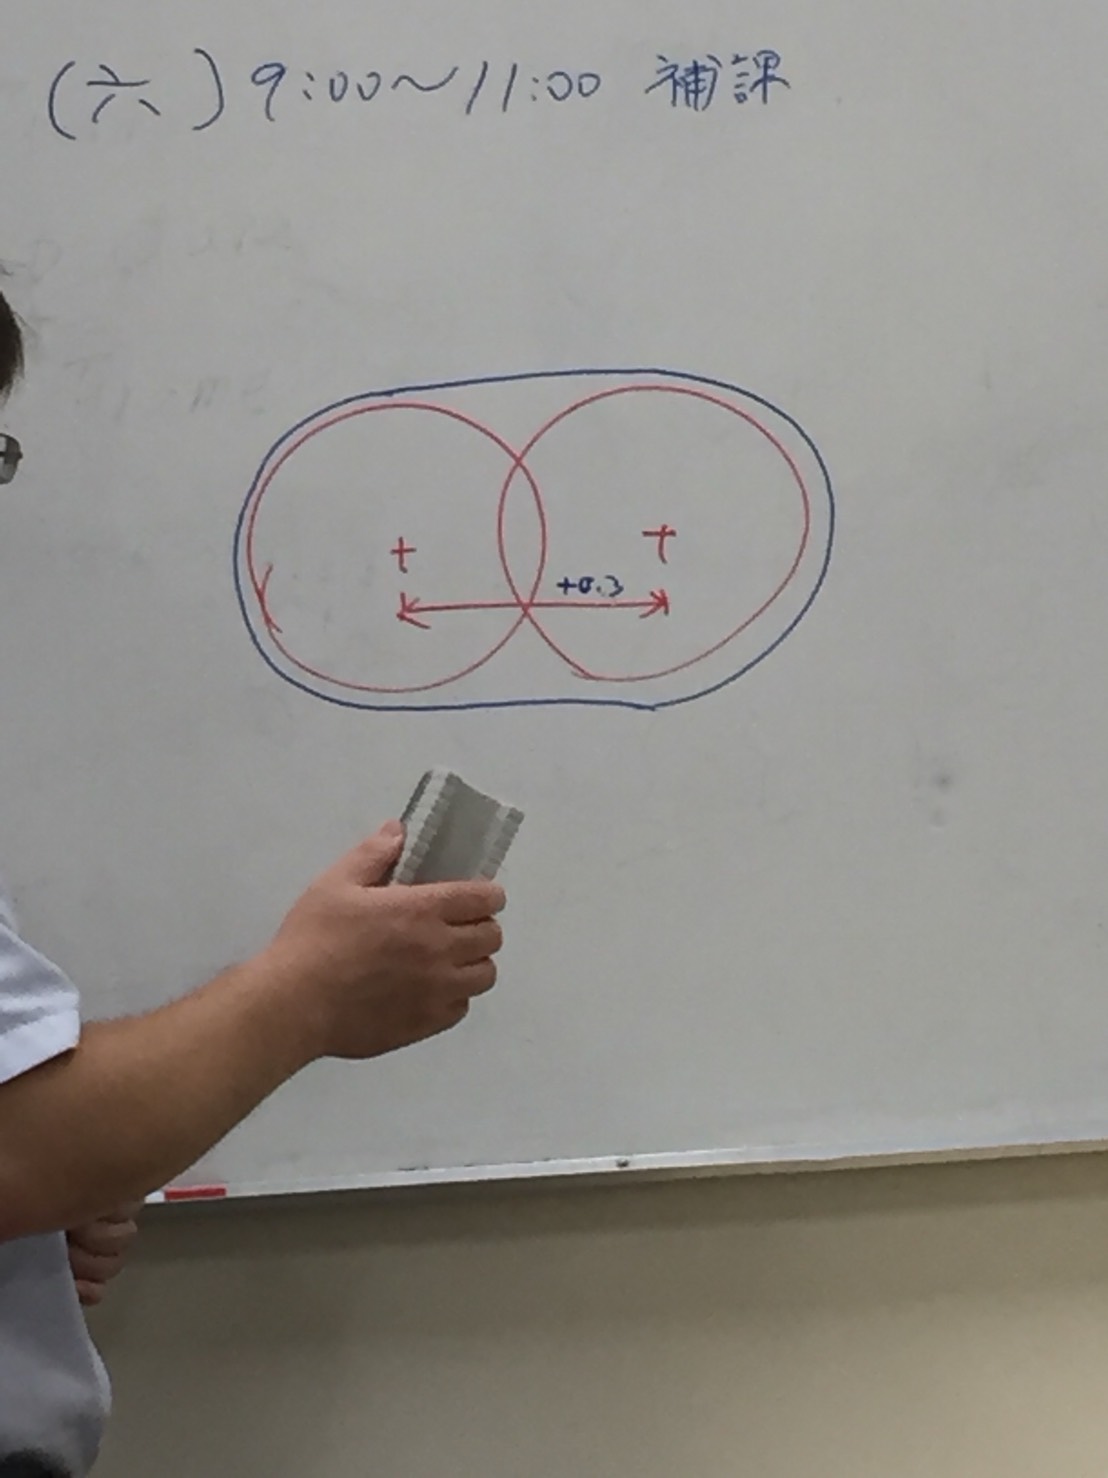 (六) 9:00~11:00 補課
+0.3